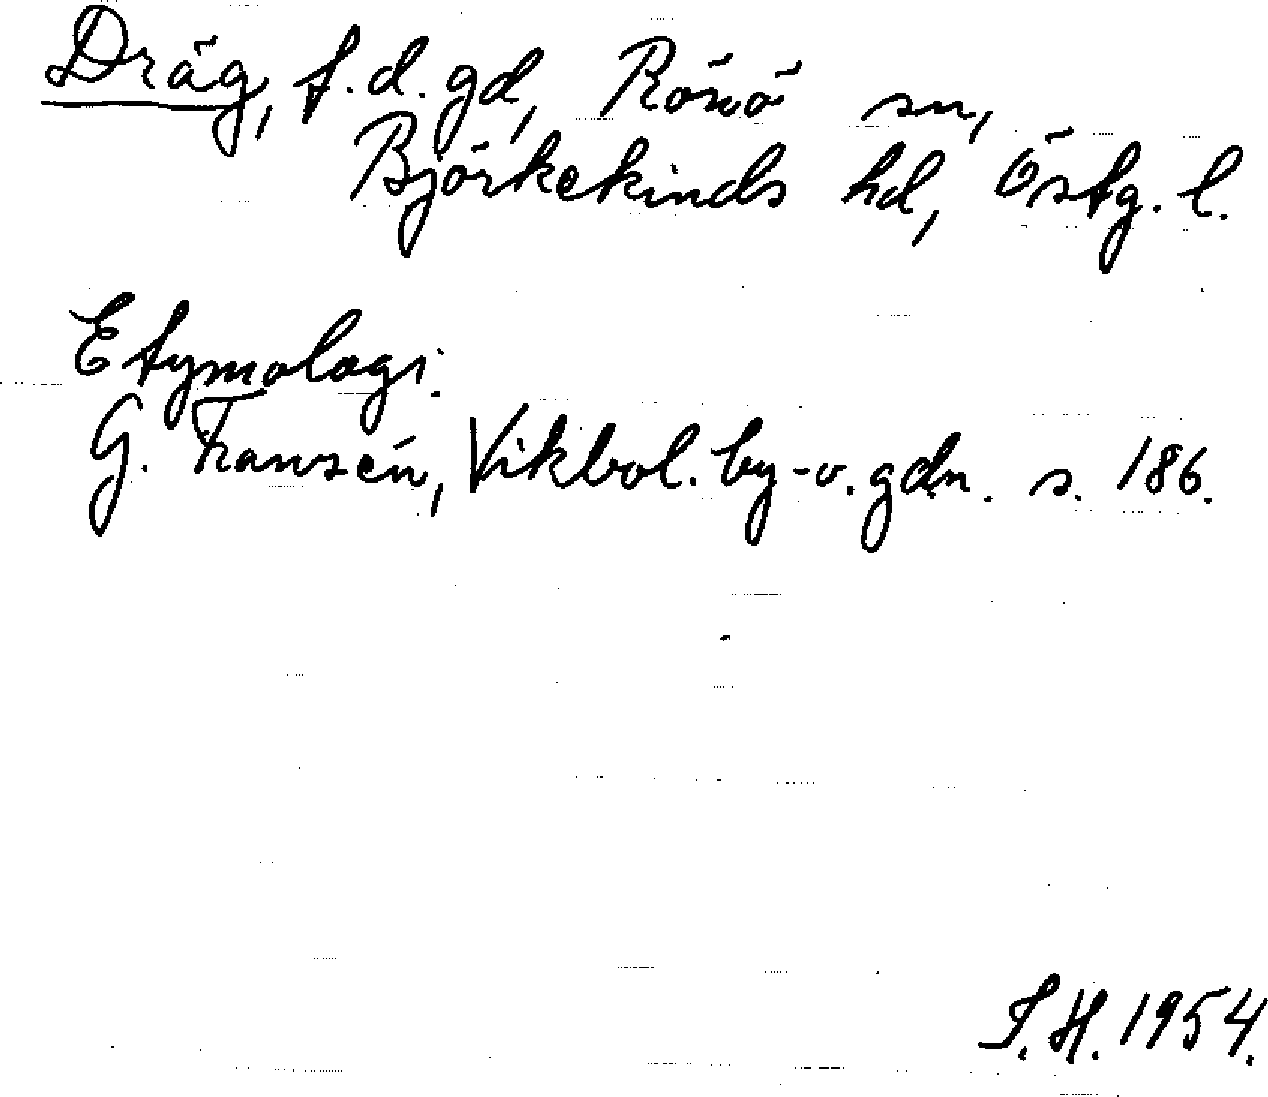 Dräg, f.d. gd, Rönö sn,
Björkekinds hd, Östg. l.
Etymologi:
G. Franzén, Vikbol. by- o. gdn. s. 186.
S. H. 1954.